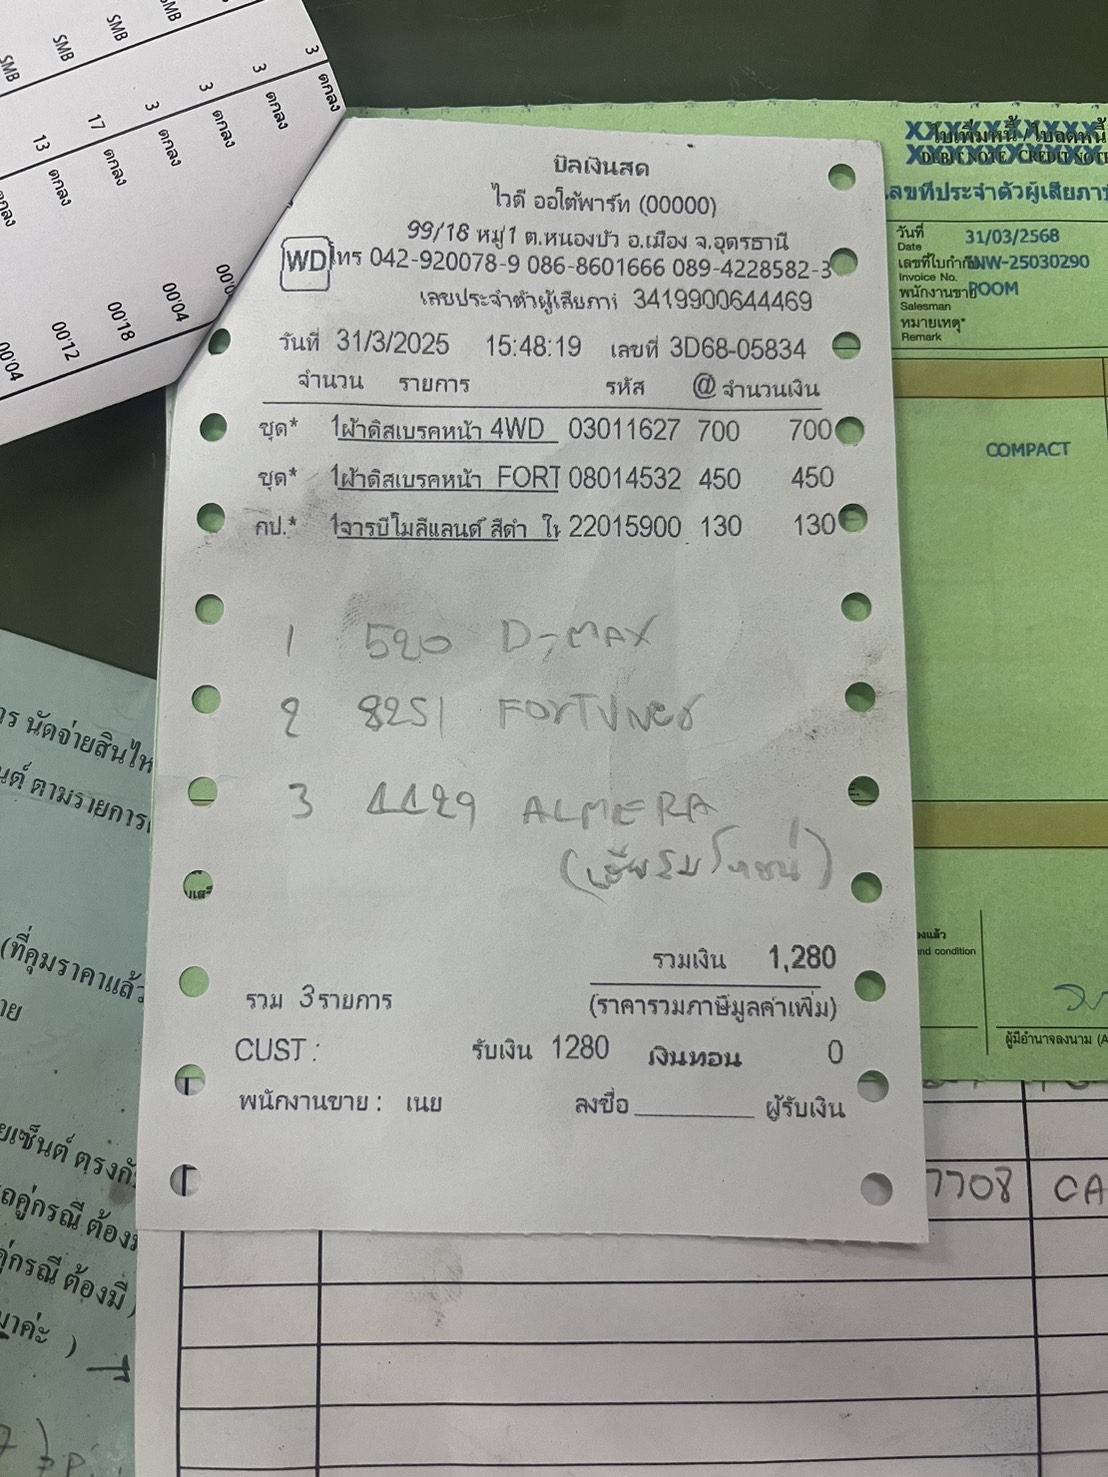 บิลเงินสด
ไวดี ออโต้พาร์ท (00000)
99/18 หมู่1 ต.หนองบัว อ.เมือง จ.อุดรธานี
WD โทร 042-920078-9 086-8601666 089-4228582-3
เลขประจำตัวผู้เสียภาษี 3419900644469
วันที่ 31/3/2025 15:48:19 เลขที่ 3D68-05834
จำนวน รายการ รหัส @ จำนวนเงิน
ชุด* 1ผ้าดิสเบรคหน้า 4WD 03011627 700 700
ชุด* 1ผ้าดิสเบรคหน้า FORT 08014532 450 450
กป.* 1จารบีโมลีแลนด์ สีดำ 22015900 130 130
1 520 D-MAX
2 8251 FORTUNER
3 1129 ALMERA
รวมเงิน 1,280
รวม 3รายการ (ราคารวมภาษีมูลค่าเพิ่ม)
CUST : รับเงิน 1280 เงินทอน 0
พนักงานขาย : เนย ลงชื่อ ผู้รับเงิน
ใบเพิ่มหนี้ / ใบลดหนี้
DEBIT NOTE / CREDIT NOTE
เลขที่ประจำตัวผู้เสียภา
วันที่ 31/03/2568
Date
INW-25030290
Invoice No.
พนักงานขาย POOM
Salesman
หมายเหตุ*
Remark
COMPACT
งแล้ว
nd condition
ผู้มีอำนาจลงนาม (A
7708 CA
SMB 3 ตกลง
SMB 3 ตกลง
SMB 3 ตกลง 00'04
SMB 3 ตกลง 00'18
17 ตกลง 00'12
13 ตกลง 00'04
ร นัดจ่ายสินไห
นต์ ตามรายการ
(ที่คุมราคาแล้ว
าย
ยเซ็นต์ ตรงกั
ถคู่กรณี ต้อง
คู่กรณี ต้องมี
มาค่ะ )